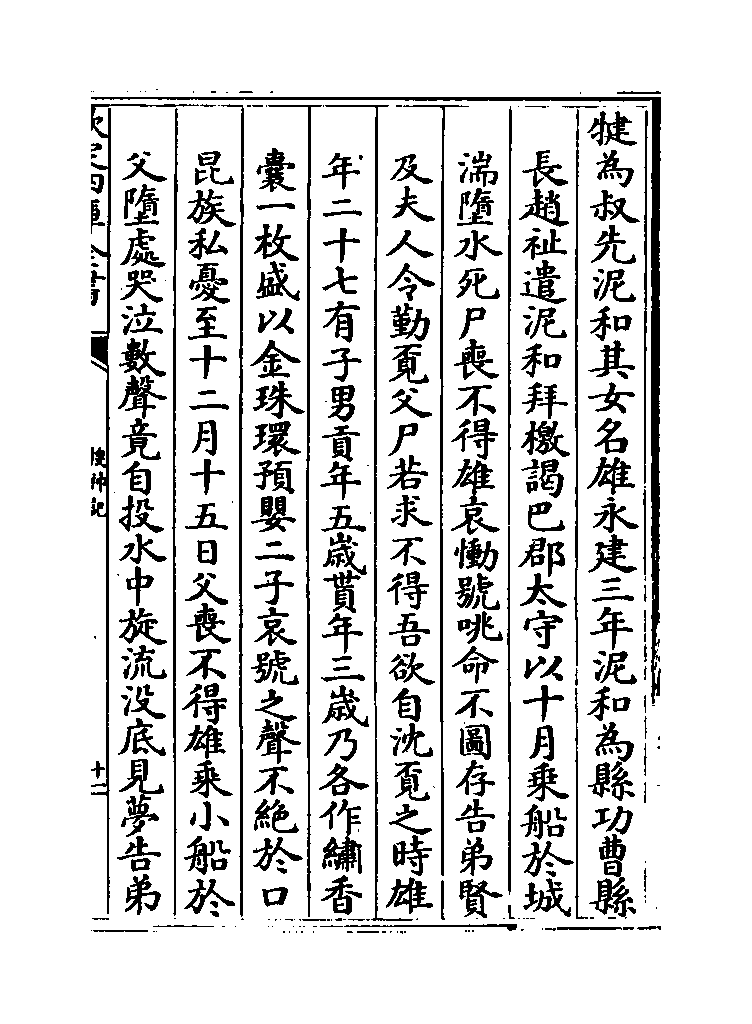 犍為叔先泥和其女名雄永建三年泥和為縣功曹縣
長趙祉遣泥和拜檄謁巴郡太守以十月乗船於城
湍墮水死尸喪不得雄哀慟號咷命不圖存告弟賢
及夫人令勤覔父尸若求不得吾欲自沈覔之時雄
年二十七有子男貢年五嵗貰年三嵗乃各作繡香
囊一枚盛以金珠環預嬰二子哀號之聲不絶於口
昆族私憂至十二月十五日父喪不得雄乗小船於
父墮處哭泣數聲竟自投水中旋流没底見夢告弟
欽定四庫全書
搜神記
十一